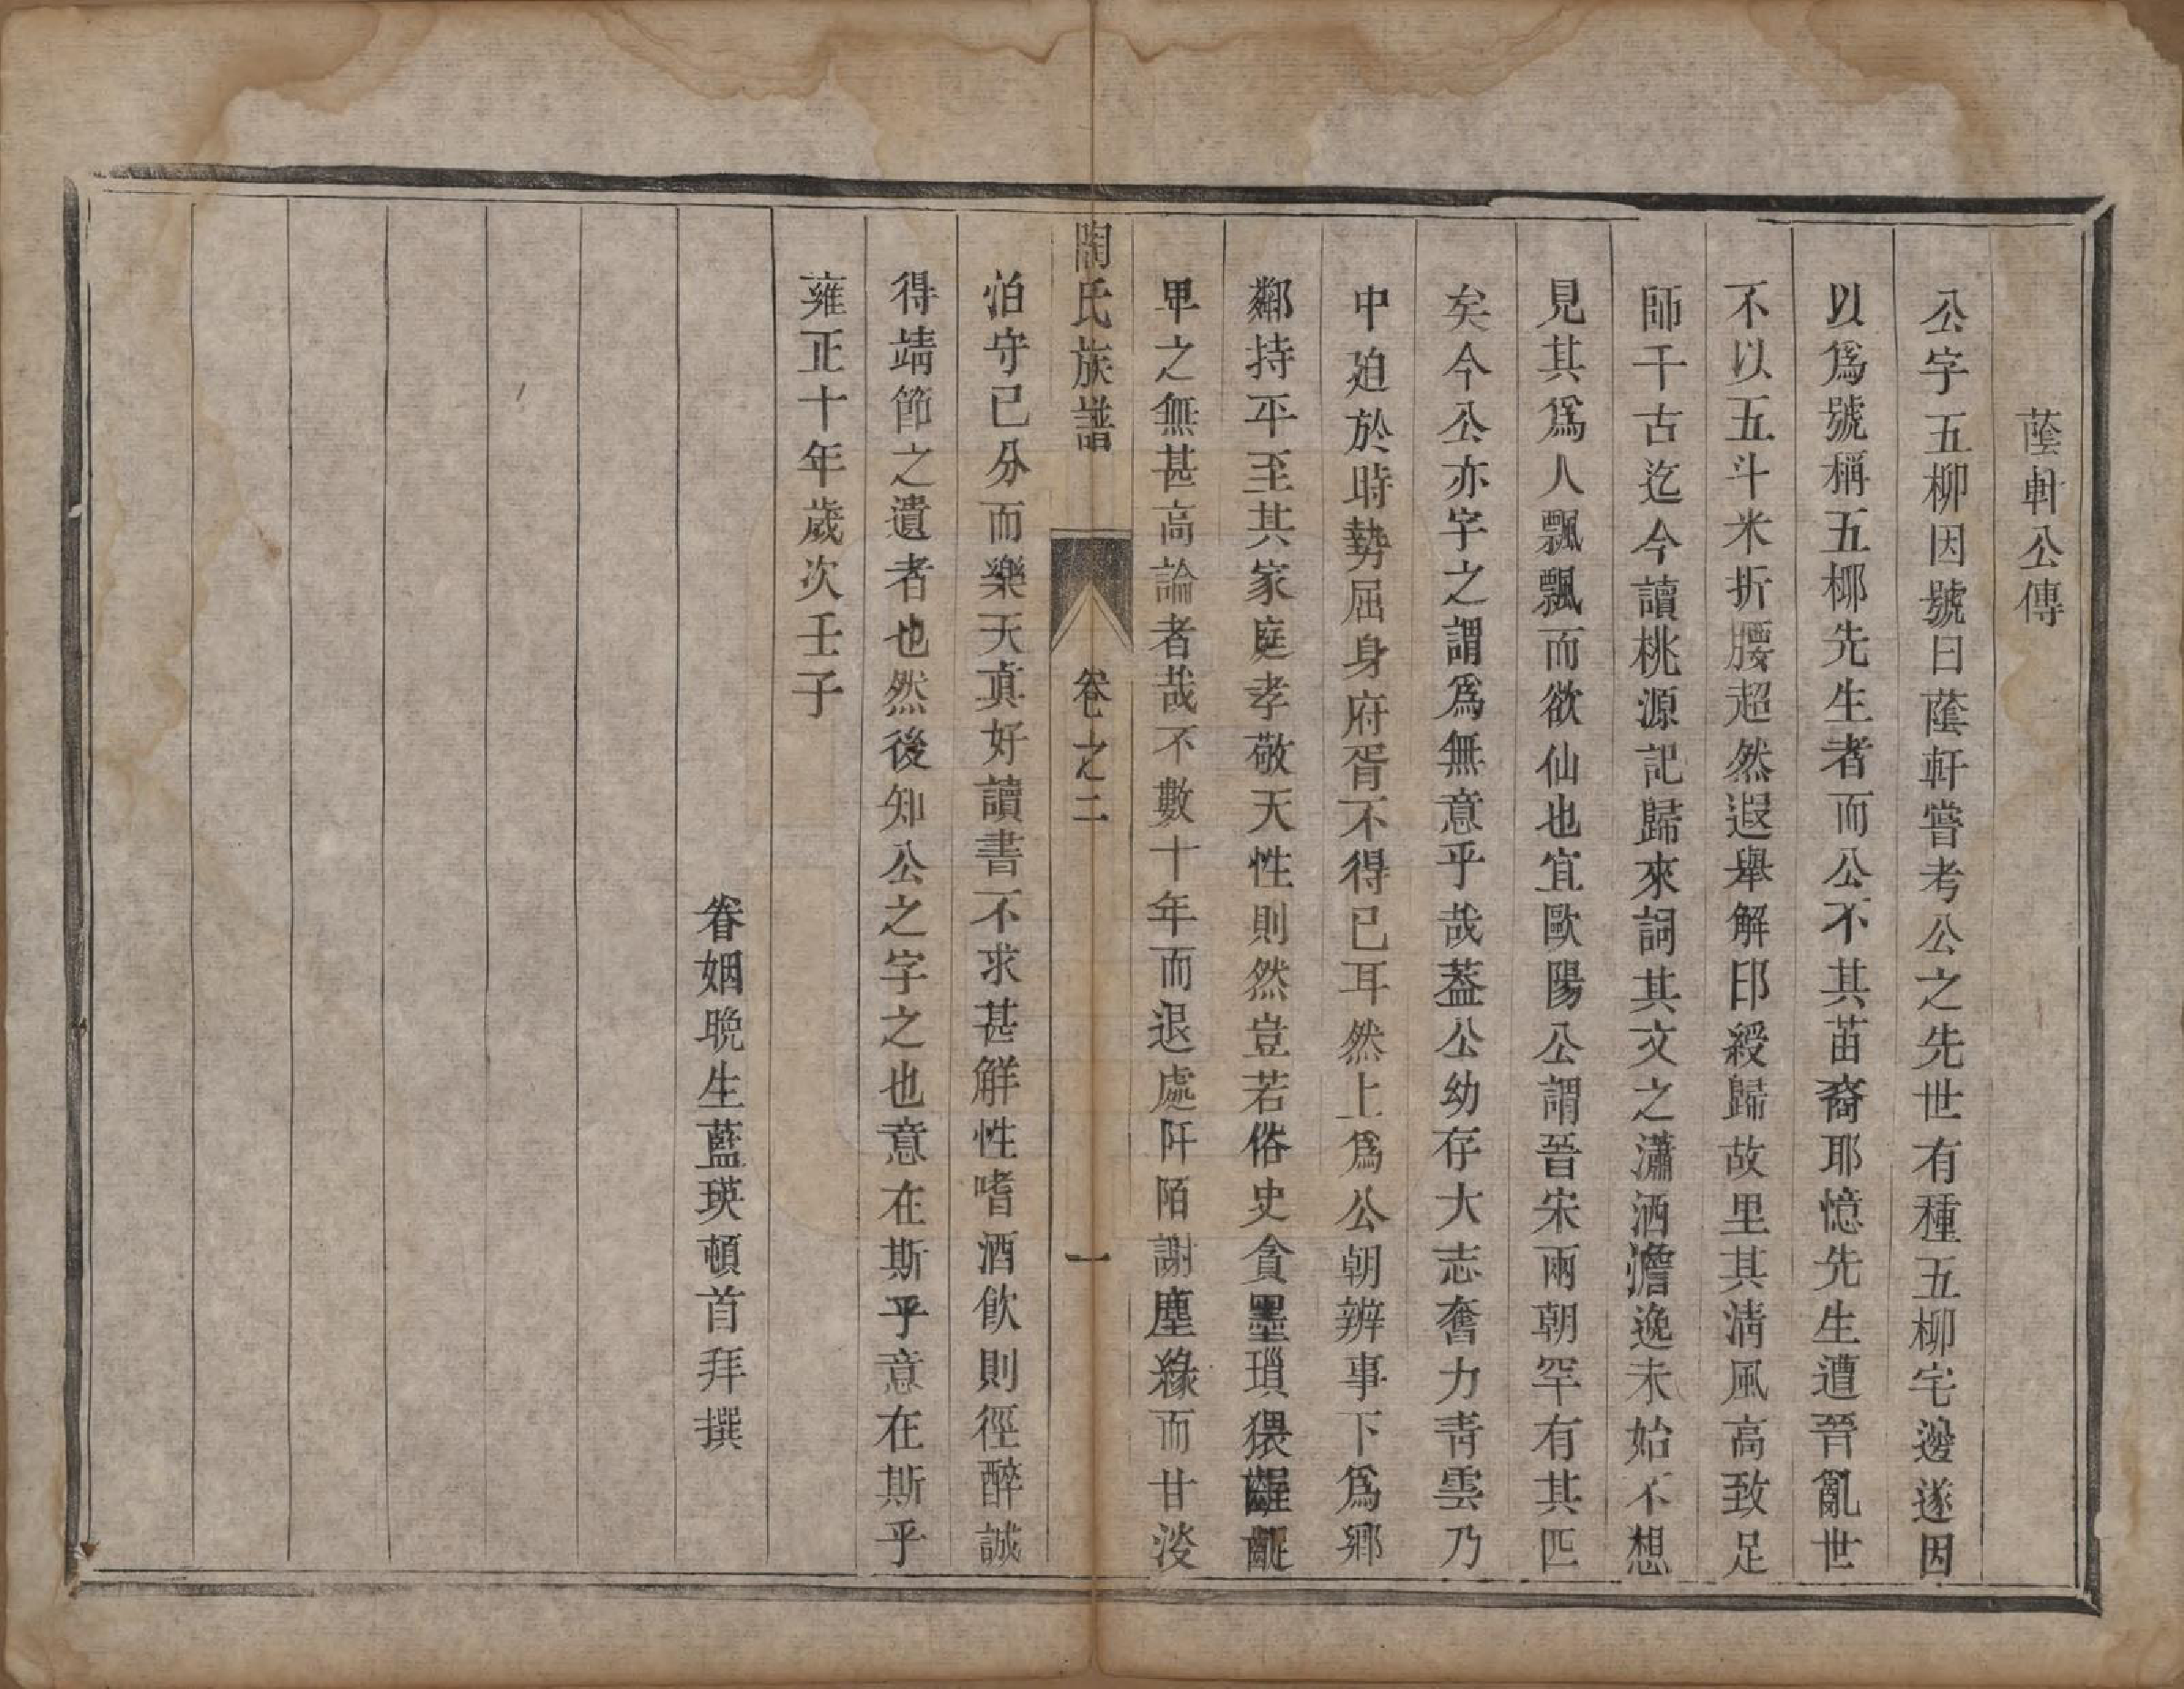 蔭軒公傳
公字五柳因號曰蔭軒嘗考公之先世有種五柳宅邊遂因
以爲號稱五柳先生者而公不其苖裔耶憶先生遭晉亂世
不以五斗米折腰超然遐舉解印綬歸故里其清風高致足
師千古迄今讀桃源記歸來詞其文之瀟洒澹逸未始不想
見其爲人飄飄而欲仙也宜歐陽公謂晉宋兩朝罕有其匹
矣今公亦字之謂爲無意乎哉葢公幼存大志奮力靑雲乃
中廹於時勢屈身府胥不得已耳然上爲公朝辨事下爲鄉
鄰持平至其家庭孝敬天性則然豈若俗史貪墨瑣猥齷齪
卑之無甚高論者哉不數十年而退處阡陌謝塵緣而甘淡
陶氏族譜
卷之二
一
泊守已分而樂天真好讀書不求甚解性嗜酒飲則徑醉誠
得靖節之遺者也然後知公之字之也意在斯乎意在斯乎
雍正十年歲次壬子
眷姻晚生藍瑛頓首拜撰